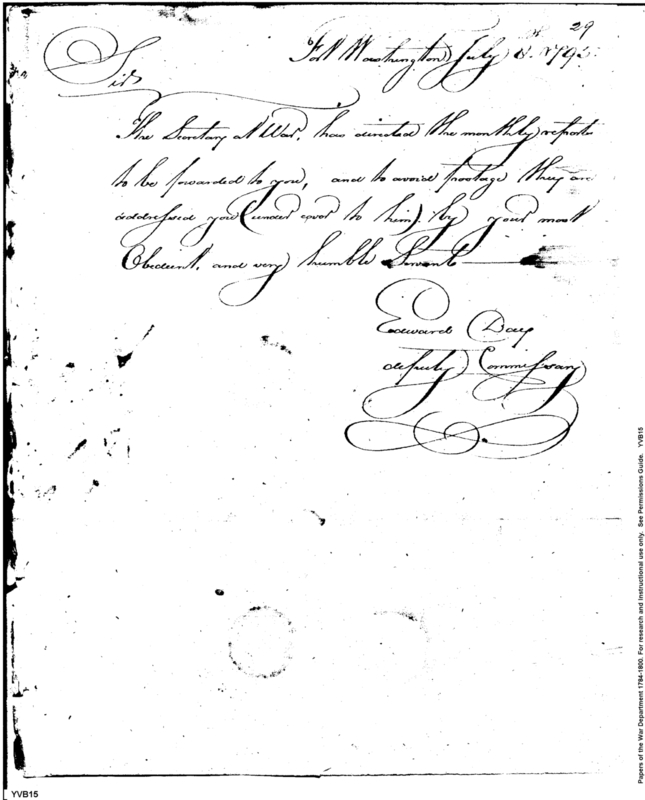 29
Fort Washington July 8th 1795.
Sir
The Secretary at War, has directed the monthly reports
to be forwarded to you, and to avoid postage they are
addressed you (under cover to him) by your most
Obedient, and very humble Servant
Edward Day
deputy Commissary
Papers of the War Department 1784-1800. For research and instructional use only. See Permissions Guide. YVB15
YVB15